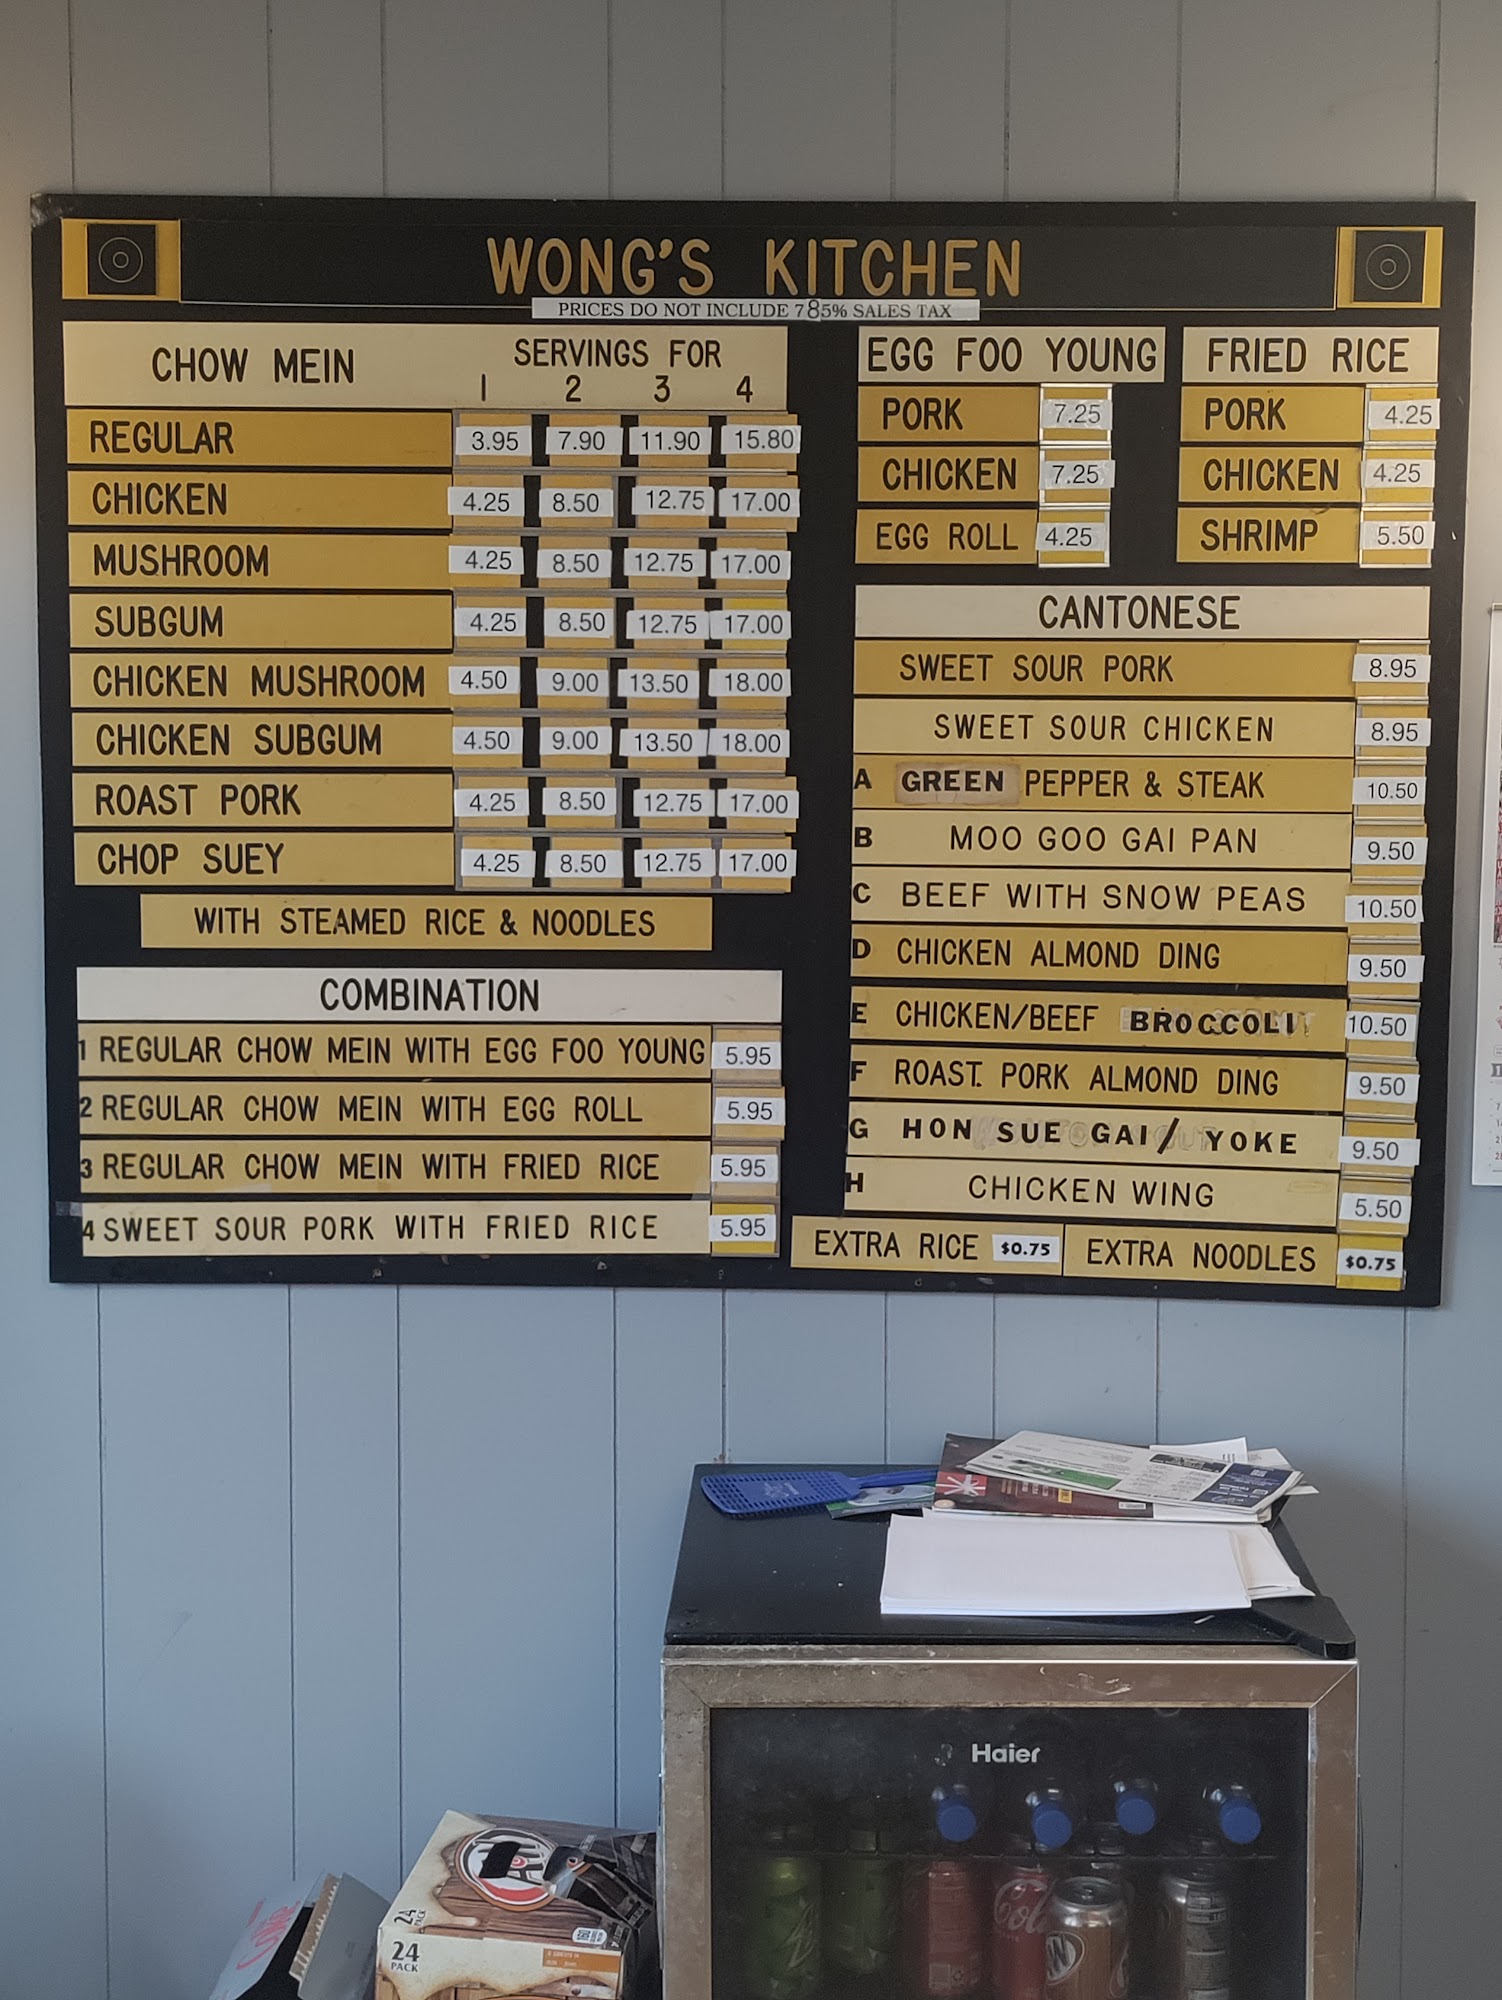 WONG'S KITCHEN
PRICES DO NOT INCLUDE 7.85% SALES TAX
CHOW MEIN SERVINGS FOR
1 2 3 4
REGULAR 3.95 7.90 11.90 15.80
CHICKEN 4.25 8.50 12.75 17.00
MUSHROOM 4.25 8.50 12.75 17.00
SUBGUM 4.25 8.50 12.75 17.00
CHICKEN MUSHROOM 4.50 9.00 13.50 18.00
CHICKEN SUBGUM 4.50 9.00 13.50 18.00
ROAST PORK 4.25 8.50 12.75 17.00
CHOP SUEY 4.25 8.50 12.75 17.00
WITH STEAMED RICE & NOODLES
COMBINATION
1 REGULAR CHOW MEIN WITH EGG FOO YOUNG 5.95
2 REGULAR CHOW MEIN WITH EGG ROLL 5.95
3 REGULAR CHOW MEIN WITH FRIED RICE 5.95
4 SWEET SOUR PORK WITH FRIED RICE 5.95
EGG FOO YOUNG
PORK 7.25
CHICKEN 7.25
EGG ROLL 4.25
FRIED RICE
PORK 4.25
CHICKEN 4.25
SHRIMP 5.50
CANTONESE
SWEET SOUR PORK 8.95
SWEET SOUR CHICKEN 8.95
A GREEN PEPPER & STEAK 10.50
B MOO GOO GAI PAN 9.50
C BEEF WITH SNOW PEAS 10.50
D CHICKEN ALMOND DING 9.50
E CHICKEN/BEEF BROCCOLI 10.50
F ROAST. PORK ALMOND DING 9.50
G HON SUE GAI / YOKE 9.50
H CHICKEN WING 5.50
EXTRA RICE $0.75 EXTRA NOODLES $0.75
Haier
24
PACK